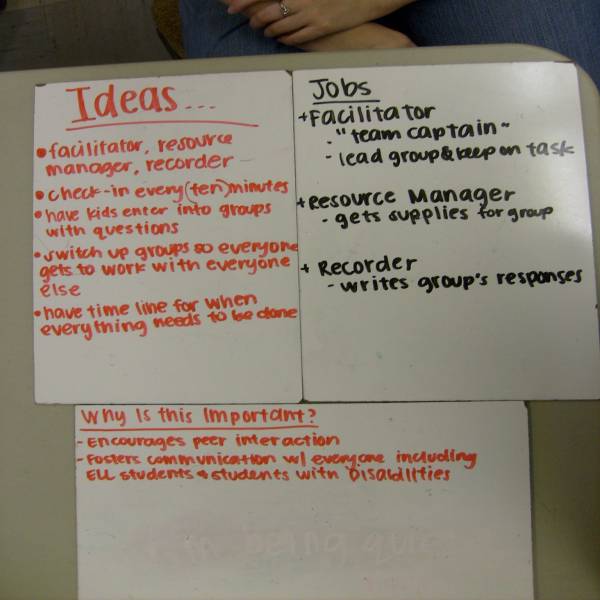 Ideas...
• facilitator, resource
manager, recorder
• check-in every (ten) minutes
• have kids enter into groups
with questions
• switch up groups so everyone
gets to work with everyone
else
• have time line for when
everything needs to be done
Jobs
+ Facilitator
- "team captain"
- lead group & keep on task
+ Resource Manager
- gets supplies for group
+ Recorder
- writes group's responses
Why Is this Important?
- Encourages peer interaction
- Fosters communication w/ everyone including
ELL students + students with Disabilities
being